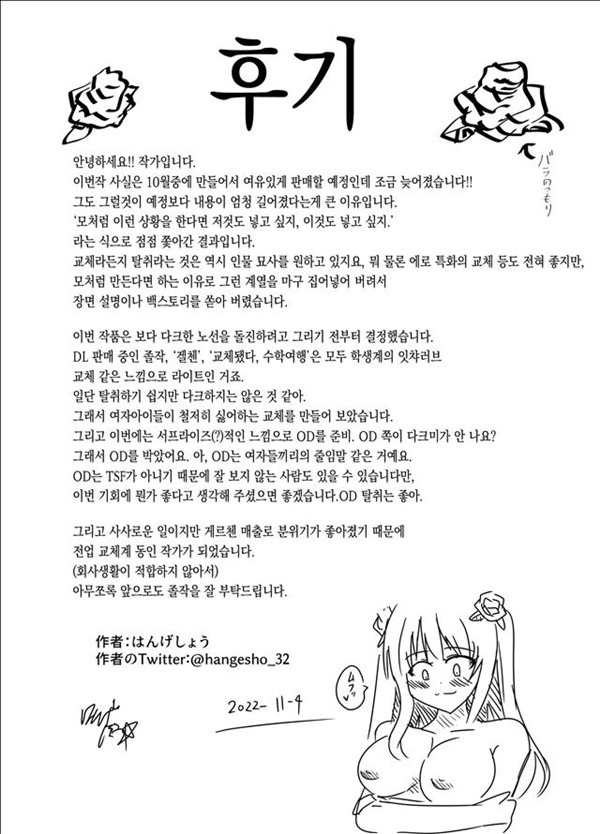 후기
バラのつもり
안녕하세요!! 작가입니다.
이번작 사실은 10월중에 만들어서 여유있게 판매할 예정인데 조금 늦어졌습니다!!
그도 그럴것이 예정보다 내용이 엄청 길어졌다는게 큰 이유입니다.
‘모처럼 이런 상황을 한다면 저것도 넣고 싶지, 이것도 넣고 싶지.’
라는 식으로 점점 쫓아간 결과입니다.
교체라든지 탈취라는 것은 역시 인물 묘사를 원하고 있지요, 뭐 물론 에로 특화의 교체 등도 전혀 좋지만,
모처럼 만든다면 하는 이유로 그런 계열을 마구 집어넣어 버려서
장면 설명이나 백스토리를 쏟아 버렸습니다.
이번 작품은 보다 다크한 노선을 돌진하려고 그리기 전부터 결정했습니다.
DL 판매 중인 졸작, ‘겔첸’, ‘교체됐다, 수학여행’은 모두 학생계의 잇챠러브
교체 같은 느낌으로 라이트인 거죠.
일단 탈취하기 쉽지만 다크하지는 않은 것 같아.
그래서 여자아이들이 철저히 싫어하는 교체를 만들어 보았습니다.
그리고 이번에는 서프라이즈(?)적인 느낌으로 OD를 준비. OD 쪽이 다크미가 안 나요?
그래서 OD를 박았어요. 아, OD는 여자들끼리의 줄임말 같은 거예요.
OD는 TSF가 아니기 때문에 잘 보지 않는 사람도 있을 수 있습니다만,
이번 기회에 뭔가 좋다고 생각해 주셨으면 좋겠습니다.OD 탈취는 좋아.
그리고 사사로운 일이지만 게르첸 매출로 분위기가 좋아졌기 때문에
전업 교체계 동인 작가가 되었습니다.
(회사생활이 적합하지 않아서)
아무쪼록 앞으로도 졸작을 잘 부탁드립니다.
作者：はんげしょう
作者のTwitter:@hangesho_32
2022-11-4
ムフッ